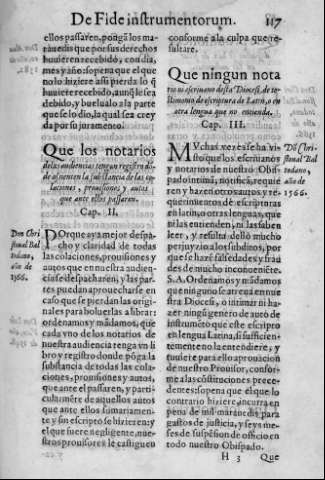 De Fide instrumentorum. 117
ellos passaren, pongã los ma-
rauedis que por sus derechos
huuieren recebido, con dia,
mes y año: so pena que el que
no lo hiziere assi pierda lo q̃
huuiere recebido, aunq̃ le sea
debido, y buelualo a la parte
que se lo dio, la qual sea crey
da por su juramento.
Que los notarios
delas audiencias tengan registro dõ-
de assienten la substancia de las co-
laciones, prouisiones y autos
que ante ellos passaren.
Cap. II.
Don Chri
stoual Bal
todano,
año de
1566.
PORque aya mejor despa-
cho y claridad de todas
las colaciones, prouisiones y
autos que en nuestra audien-
cia se despacharen, y las par-
tes puedan aprouecharse en
caso que se pierdan las origi-
nales para boluerlas a librar:
ordenamos y mãdamos, que
cada vno de los notarios de
nuestra audiencia tenga vn li
bro y registro donde põga la
substancia de todas las cola-
ciones, prouisiones y autos,
que ante el passaren, y parti-
cularmẽte de aquellos autos
que ante ellos sumariamen-
te y sin escripto se hizieren: y
el que fuere negligente, nue-
stros prouisores le castiguen
conforme a la culpa que re-
sultare.
Que ningun nota
rio ni escriuano desta Diocesi, de te-
stimonio de escriptura de Latin, o en
otra lengua que no entienda.
Cap. III.
MVchas vezes se ha vi-
sto que los escriuanos
y notarios de nuestro Obis-
pado intima, notifica, requie
ren y hazen otros autos y re-
querimientos de escripturas
en latin, o otras lenguas, que
ni las entienden, ni las saben
leer, y resulta dello mucho
perjuyzio a los subditos, por
que se hazẽ falsedades y frau
des de mucho inconueniẽte.
S.A. Ordenamos y mãdamos
que ninguno se atreua en nue
stra Diocesi, o intimar ni ha-
zer ningũ genero de auto de
instrumẽto que este escripto
en lengua Latina, si sufficien-
temente no la entendiere, y
tuuiere para ello aprouacion
de nuestro Prouisor, confor-
me a las cõstituciones prece-
dentes: so pena que el que lo
contrario hiziere, incurra en
pena de mil marauedis para
gastos de justicia, y seys me-
ses de suspẽsion de officio en
todo nuestro Obispado.
Dõ Chri-
stoual Bal
todano,
año de
1566.
H 3 Que